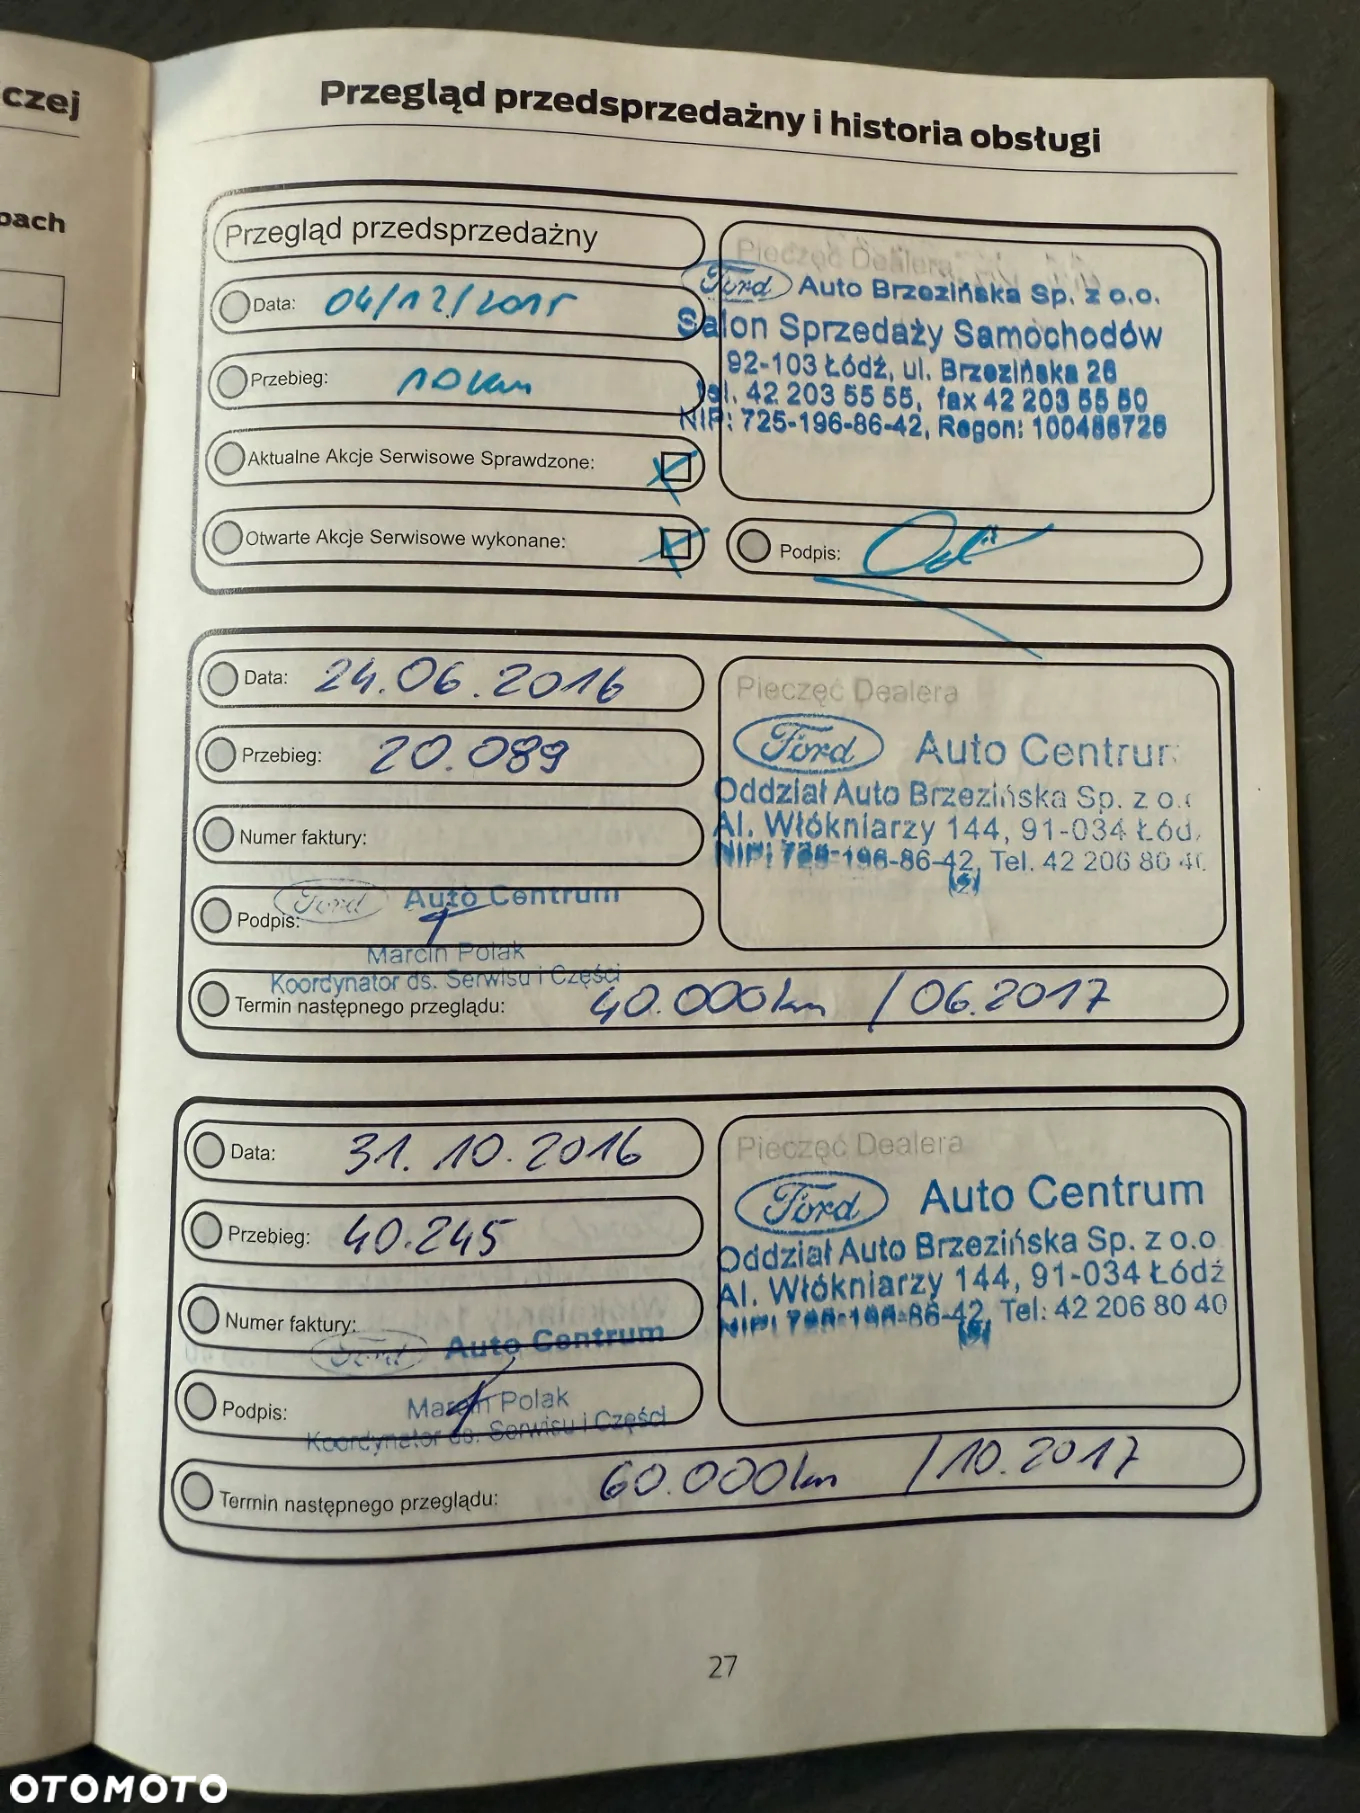 czej
pach
Przegląd przedsprzedażny i historia obsługi
Przegląd przedsprzedażny
Data: 04/12/2015
Przebieg: 10 km
Aktualne Akcje Serwisowe Sprawdzone:
Otwarte Akcje Serwisowe wykonane:
Pieczęć Dealera
Ford Auto Brzezińska Sp. z o.o.
Salon Sprzedaży Samochodów
92-103 Łódź, ul. Brzezińska 26
tel. 42 203 55 55, fax 42 203 55 50
NIP: 725-196-86-42, Regon: 100486726
Podpis:
Data: 24.06.2016
Przebieg: 20.089
Numer faktury:
Podpis:
Ford Auto Centrum
Marcin Polak
Koordynator ds. Serwisu i Części
Pieczęć Dealera
Ford Auto Centrum
Oddział Auto Brzezińska Sp. z o.o
Al. Włókniarzy 144, 91-034 Łódź
NIP: 725-196-86-42, Tel. 42 206 80 40
Termin następnego przeglądu: 40.000km / 06.2017
Data: 31.10.2016
Przebieg: 40.245
Numer faktury:
Podpis:
Ford Auto Centrum
Marcin Polak
Koordynator ds. Serwisu i Części
Pieczęć Dealera
Ford Auto Centrum
Oddział Auto Brzezińska Sp. z o.o
Al. Włókniarzy 144, 91-034 Łódź
NIP: 725-196-86-42, Tel: 42 206 80 40
Termin następnego przeglądu: 60.000km / 10.2017
27
OTOMOTO